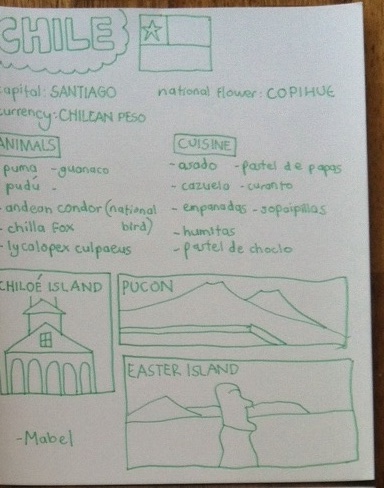 CHILE
capital: SANTIAGO national flower: COPIHUE
currency: CHILEAN PESO
ANIMALS CUISINE
puma - guanaco
pudú -
- andean condor (national bird)
- chilla fox
- lycalopex culpaeus
- asado - pastel de papas
- cazuela - curanto
- empanadas - sopaipillas
- humitas
- pastel de choclo
CHILOÉ ISLAND PUCON
EASTER ISLAND
- Mabel